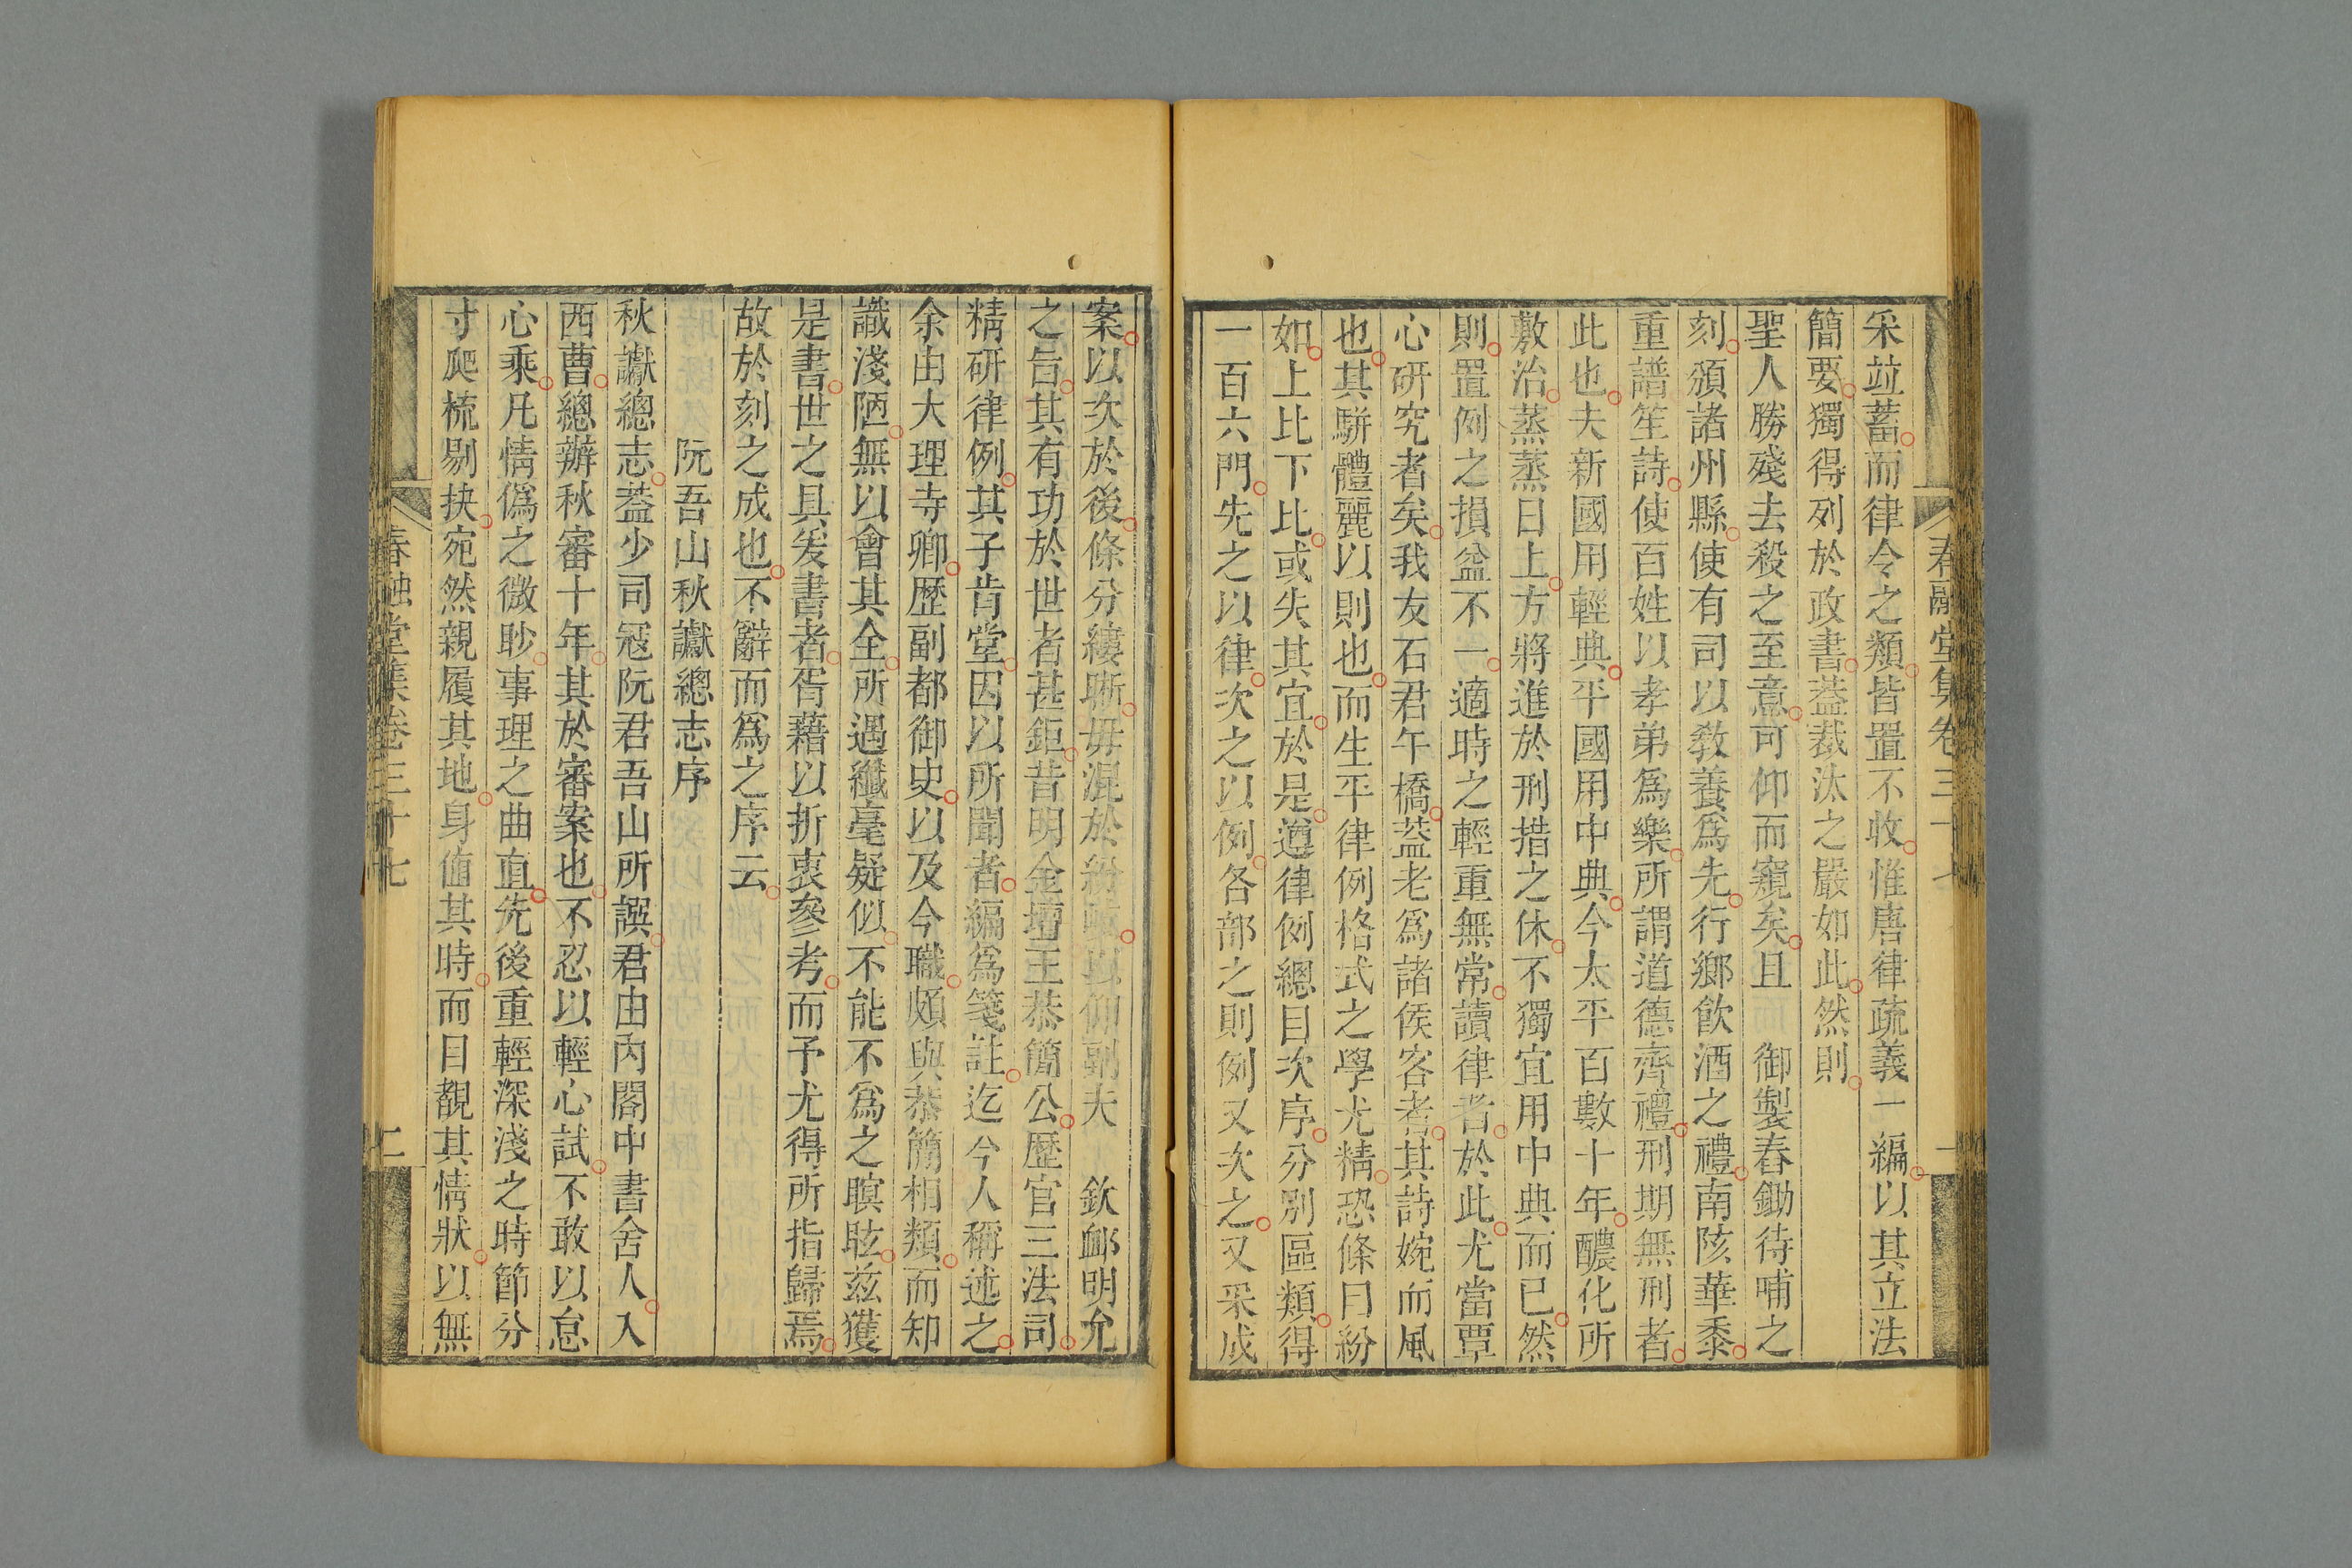 春融堂集卷三十七
采竝蓄而律令之類皆置不收惟唐律疏義一編以其立法
簡要獨得列於政書葢裁汰之嚴如此然則
聖人勝殘去殺之至意可仰而窺矣且 御製春鋤待哺之
刻頒諸州縣使有司以敎養爲先行鄉飮酒之禮南陔華黍
重譜笙詩使百姓以孝弟爲樂所謂道德齊禮刑期無刑者
此也夫新國用輕典平國用中典今太平百數十年醲化所
敷治蒸蒸日上方將進於刑措之休不獨宜用中典而已然
則置例之損益不一適時之輕重無常讀律者於此尤當覃
心硏究者矣我友石君午橋葢老爲諸侯客者其詩婉而風
也其駢體麗以則也而生平律例格式之學尤精恐條曰紛
如上比下比或失其宜於是遵律例總目次序分別區類得
一百六門先之以律次之以例各部之則例又次之又采成
案以次於後條分縷晰毋混於紛以仰副夫 欽䘏明允
之旨其有功於世者甚鉅昔明金壇王恭簡公歷官三法司
精硏律例其子肯堂因以所聞者編爲箋註迄今人稱述之
余由大理寺卿歷副都御史以及今職頗與恭簡相類而知
識淺陋無以會其全所遇纖毫疑似不能不爲之瞑眩兹獲
是書世之具爰書者胥藉以折衷參考而予尤得所指歸焉
故於刻之成也不辭而爲之序云
阮吾山秋讞總志序
秋讞總志葢少司冦阮君吾山所譔君由內閣中書舍人入
西曹總辦秋審十年其於審案也不忍以輕心試不敢以怠
心乘凡情僞之微眇事理之曲直先後重輕深淺之時節分
寸爬梳剔抉宛然親履其地身値其時而目覩其情狀以無
春融堂集卷三十七
二